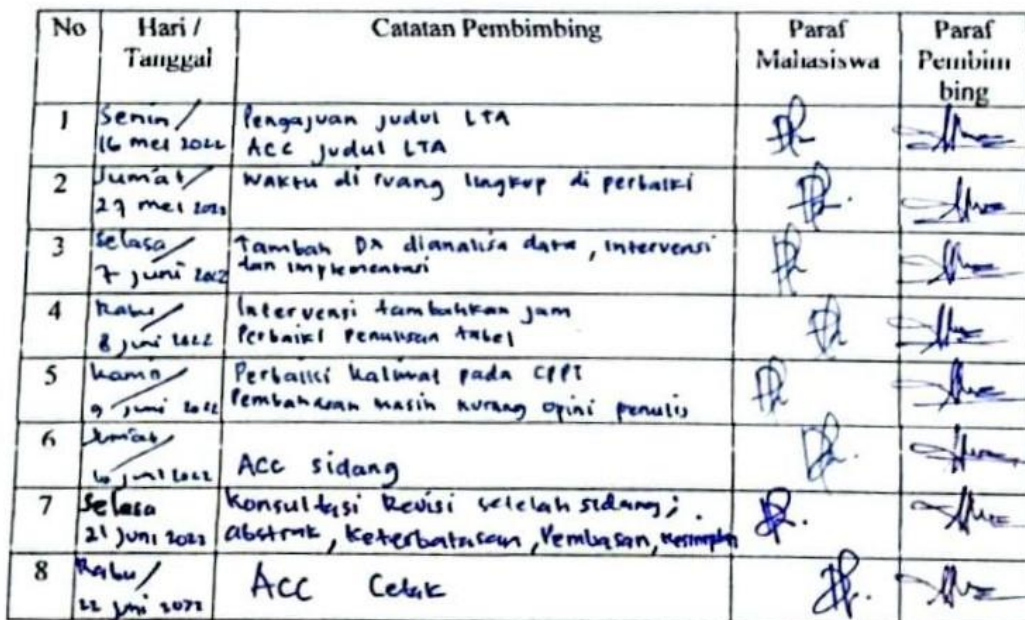 No Hari / Tanggal Catatan Pembimbing Paraf Mahasiswa Paraf Pembim bing
1 Senin / 16 mei 2022 Pengajuan judul LTA
ACC judul LTA
2 Jum'at / 27 mei 2022 Waktu di ruang lingkup di perbaiki
3 Selasa / 7 juni 2022 Tambah DX dianalisa data, intervensi
dan implementasi
4 Rabu / 8 juni 2022 Intervensi tambahkan jam
Perbaiki Penulisan tabel
5 kamis / 9 juni 2022 Perbaiki kalimat pada CPPT
Pembahasan masih kurang opini penulis
6 Jum'at / 10 juni 2022 ACC sidang
7 Selasa 21 Juni 2022 Konsultasi Revisi setelah sidang;
abstrak, Keterbatasan, Pembasan, Kesimpulan
8 Rabu / 22 juni 2022 ACC Cetak